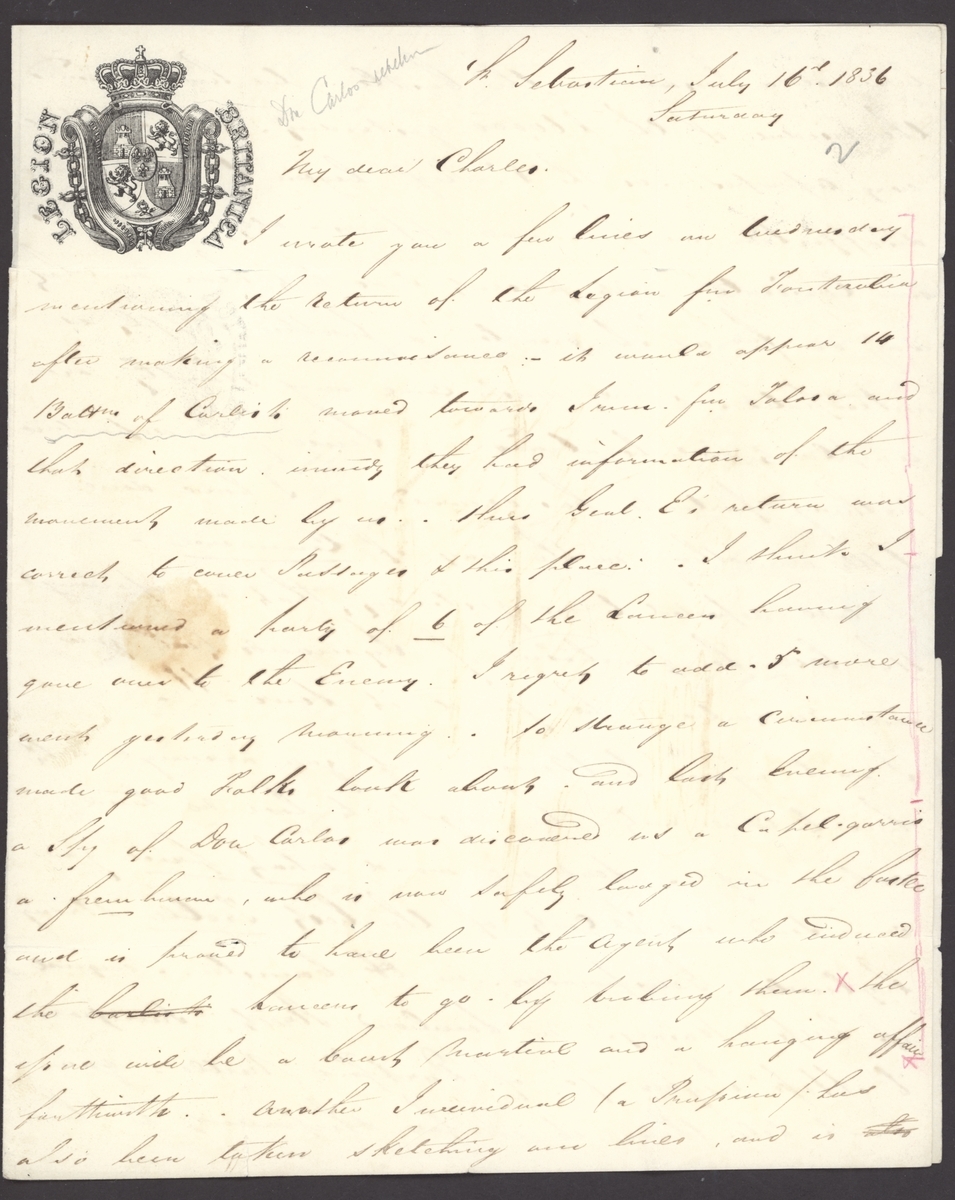 LEGION BRITANICA
Don Carlos
St. Sebastian, July 16th. 1836
Saturday
2
My dear Charles.
I wrote you a few lines on Wednesday
mentioning the return of the Legion fm Fontarabia
after making a reconnaisance - it would appear 14
Battns. of Carlists moved towards Irun. fm Tolosa and
that direction. immdy they had information of the
movement made by us. . thus Genl. E's return was
correct, to cover Passages & this place. . I think I
mentioned a party of 6 of the Lancers having
gone over to the Enemy. I regret to add. 5 more
went yesterday morning. . So strange a circumstance
made good Folks look about, and last Evening.
a Spy of Don Carlos was discovered as a Chapel-gorris
a Frenchman, who is now safely lodged in the Castle
and is proved to have been the Agent, who induced
the Carlists Lancers to go. by bribing them. X the
issue will be a Court Martial and a hanging affair
forthwith. . another Individual (a Prussian) has
also been taken sketching our lines, and is also